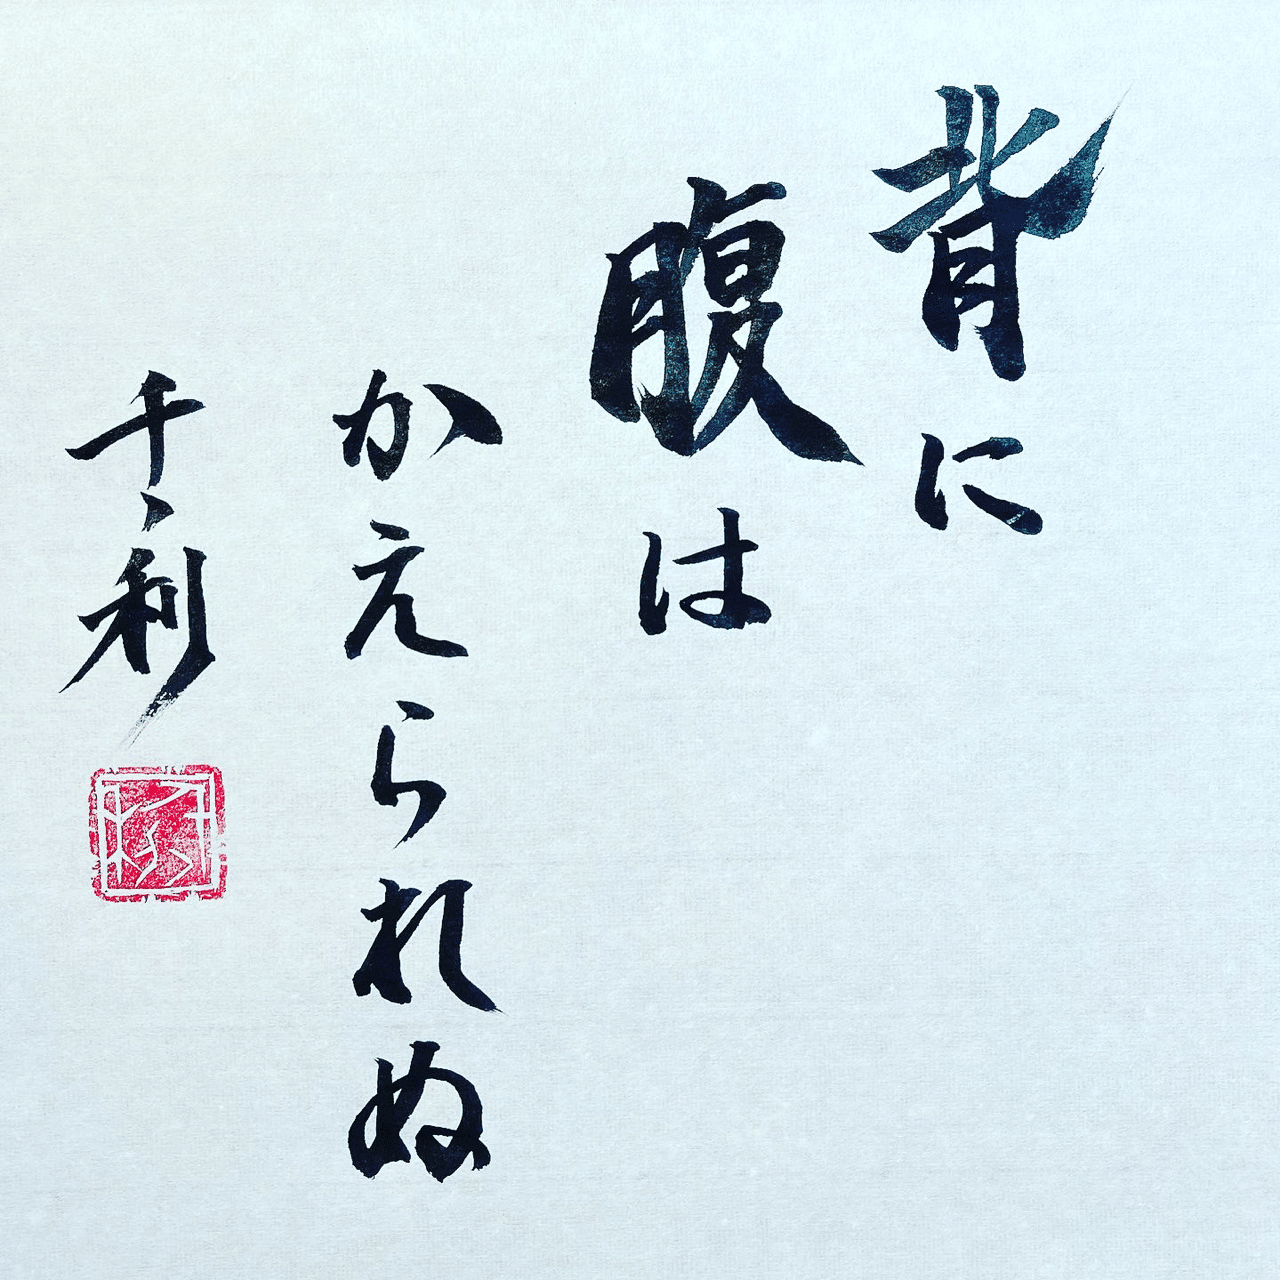 背に
腹は
かえられぬ
千、利